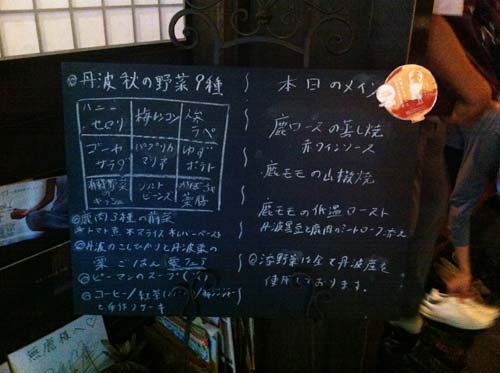 丹波 秋の野菜 9種
ハニー
セロリ
梅レンコン
人参
ラペ
ゴーヤ
サラダ
パプリカ
マリネ
ゆず
ポテト
有機野菜の
キッシュ
ソルト
ビーンズ
鹿肉3種の前菜
トマト煮 スライス レバーペースト
丹波のこしひかりと丹波栗の
栗ごはん
ピーマンのスープ
コーヒー/紅茶
と手作りケーキ
本日のメイン
鹿ロースの蒸し焼
赤ワインソース
鹿モモの山椒焼
鹿モモの低温ロースト
丹波黒豆と鹿肉のミートローフ
野菜は全て丹波産を
使用しております。